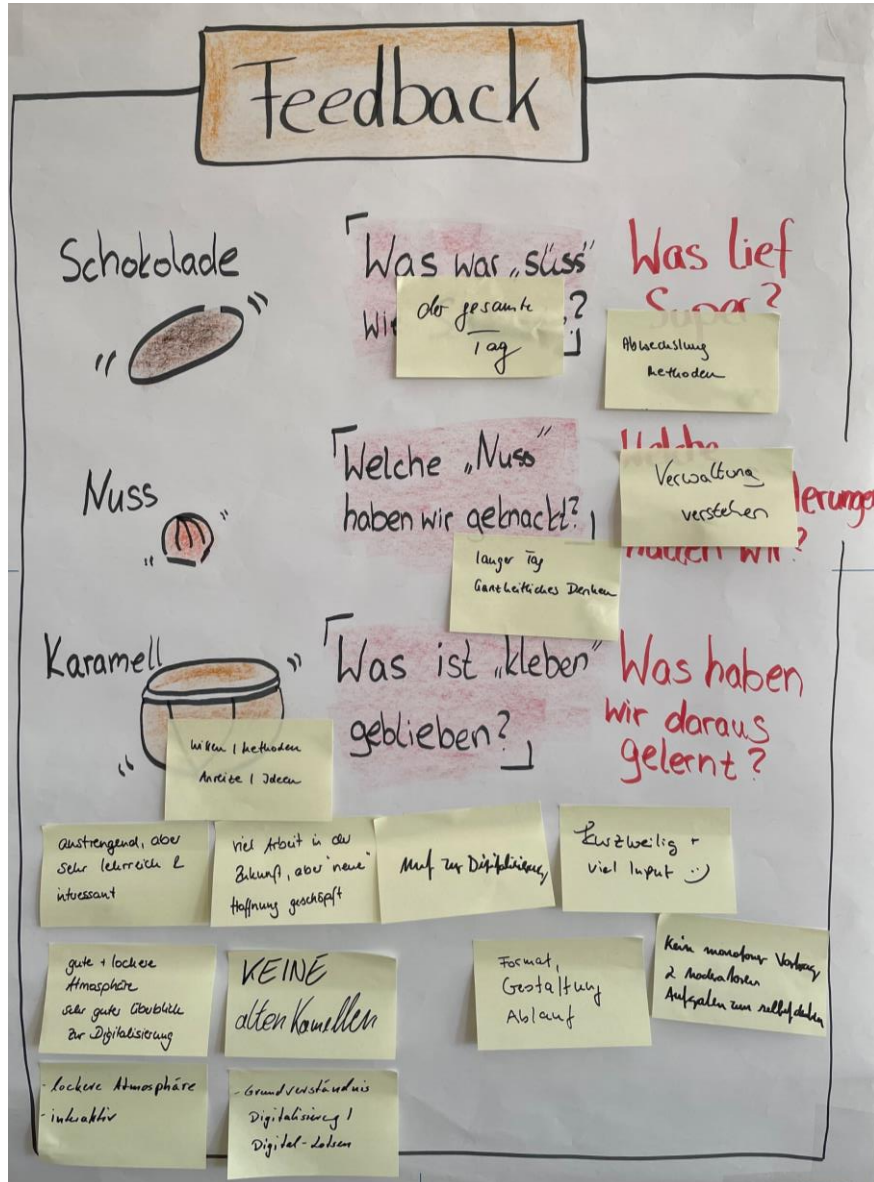 Feedback
Schokolade
Was war „süss"
Wi
?
Was lief
Super?
der gesamte
Tag
Abwechslung
Methoden
Nuss
Welche „Nuss"
haben wir geknackt?
Welche
lerungen
hatten wir?
Verwaltung
verstehen
langer Tag
Ganzheitliches Denken
Karamell
Was ist „kleben"
geblieben?
Was haben
wir daraus
gelernt?
Methoden
Anreize / Ideen
anstrengend, aber
sehr lehrreich &
intressant
viel Arbeit in der
Zukunft, aber "neue"
Hoffnung geschöpft
Mut zur
Kurzweilig +
viel Input :)
gute + lockere
Atmosphäre
sehr guter Überblick
zur Digitalisierung
KEINE
alten Kamellen
Format,
Gestaltung
Ablauf
Kein monotoner Vortrag
2 Moderatoren
Aufgaben zum
- lockere Atmosphäre
- interaktiv
- Grundverständnis
Digitalisierung /
Digital-Lotsen